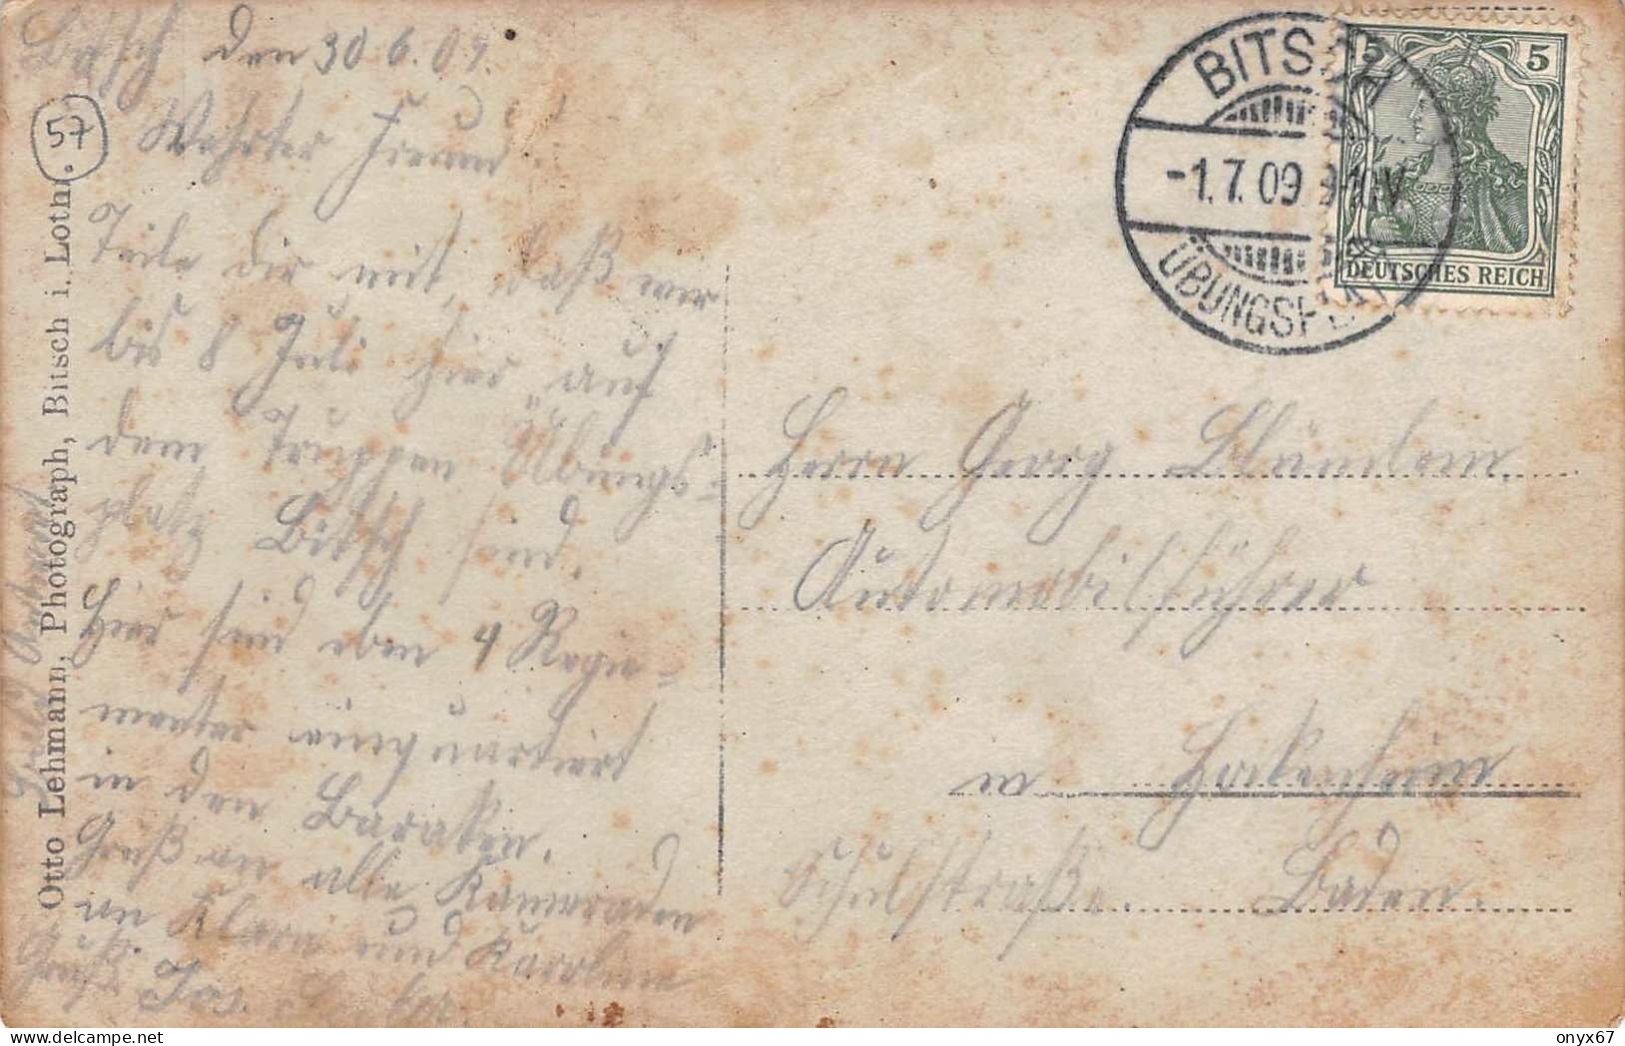 Bitsch den 30 6. 09.
Wehrter Freund.
Teile dir mit, daß wir
bis 8 Juli hier auf
dem Truppen Übungs-
platz Bitsch sind.
Hier sind eben 4 Regie-
menter einquartiert
in den Baraken.
Gruß an alle Kameraden
an Klara und Karoline
Gruß. Jos.
57
Otto Lehmann, Photograph, Bitsch i. Lothr.
BITSCH
-1.7.09. 9-10.V
ÜBUNGSPLATZ
5 5
DEUTSCHES REICH
Herrn Georg
Automobilführer
in Hokenheim
Schulstraße. Baden.
onyx67
www.delcampe.net